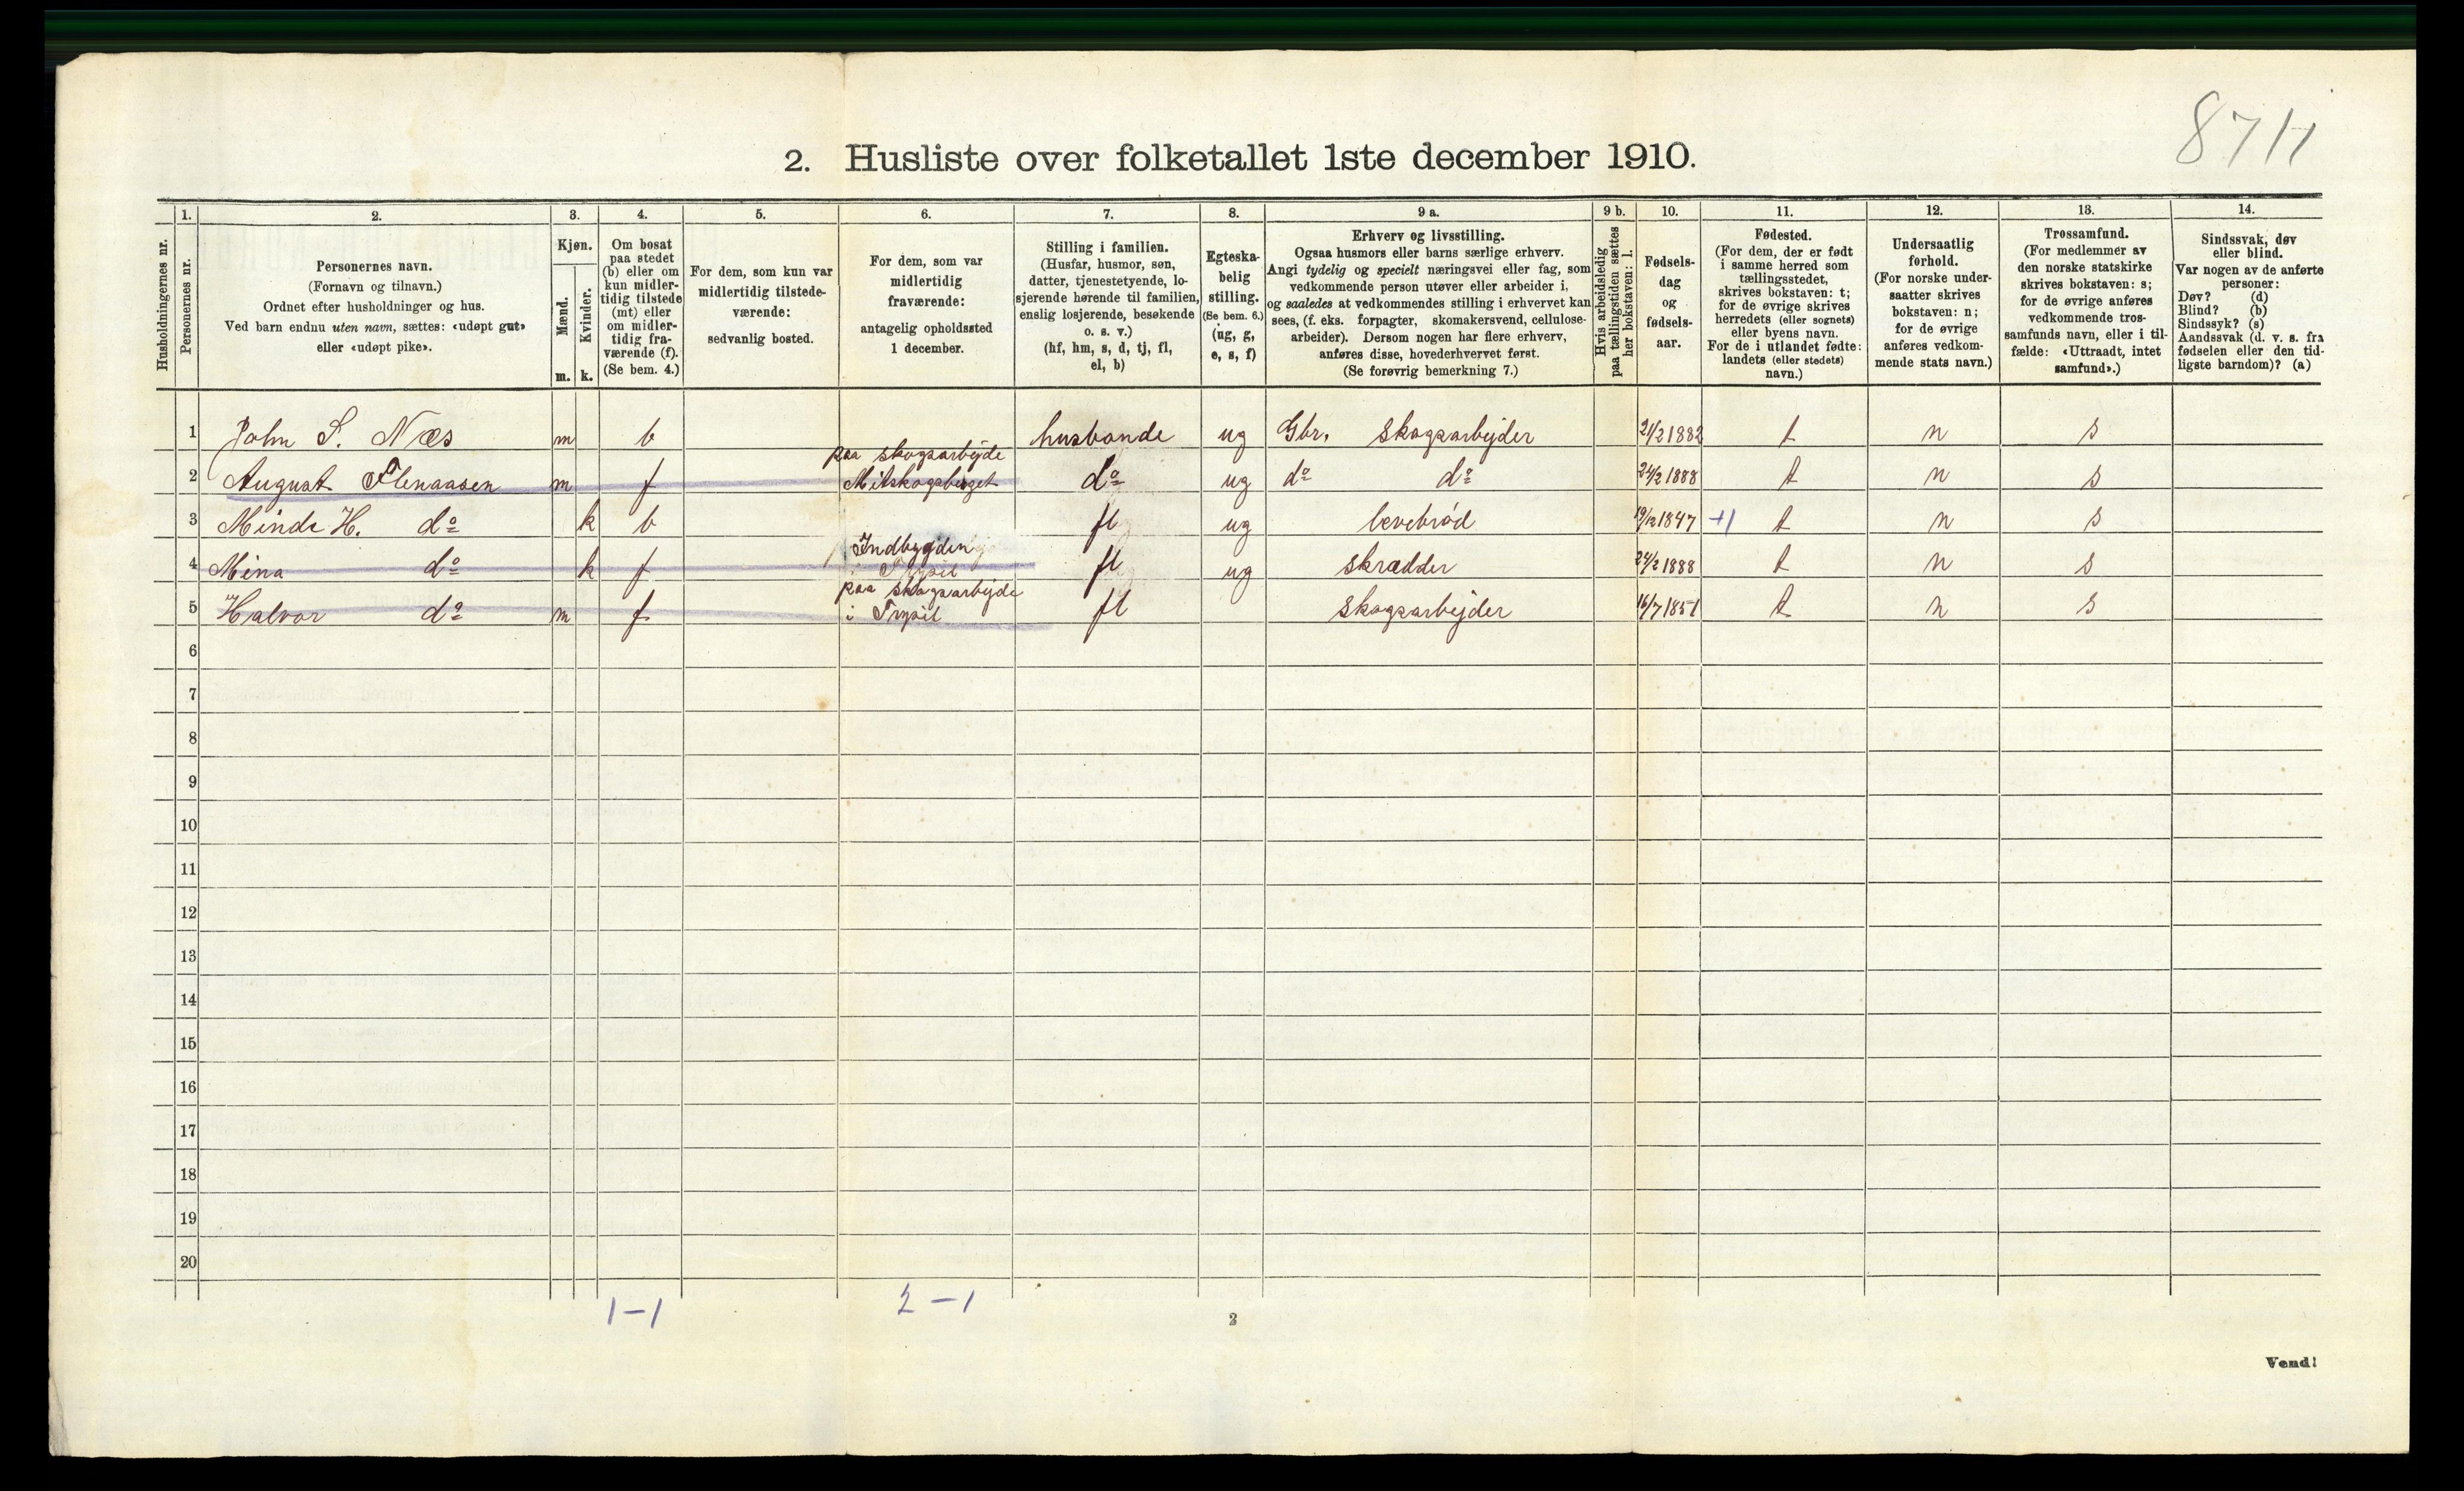 8711
2. Husliste over folketallet 1ste december 1910.
Husholdningernes nr.
1. Personernes nr.
2. Personernes navn.
(Fornavn og tilnavn.)
Ordnet efter husholdninger og hus.
Ved barn endnu uten navn, sættes: «udøpt gut»
eller «udøpt pike».
3. Kjøn.
Mænd. m.
Kvinder. k.
4. Om bosat
paa stedet
(b) eller om
kun midler-
tidig tilstede
(mt) eller
om midler-
tidig fra-
værende (f).
(Se bem. 4.)
5. For dem, som kun var
midlertidig tilstede-
værende:
sedvanlig bosted.
6. For dem, som var
midlertidig
fraværende:
antagelig opholdssted
1 december.
7. Stilling i familien.
(Husfar, husmor, søn,
datter, tjenestetyende, lo-
sjerende hørende til familien,
enslig losjerende, besøkende
o. s. v.)
(hf, hm, s, d, tj, fl,
el, b)
8. Egteska-
belig
stilling.
(Se bem. 6.)
(ug, g,
e, s, f)
9 a. Erhverv og livsstilling.
Ogsaa husmors eller barns særlige erhverv.
Angi tydelig og specielt næringsvei eller fag, som
vedkommende person utøver eller arbeider i,
og saaledes at vedkommendes stilling i erhvervet kan
sees, (f. eks. forpagter, skomakersvend, cellulose-
arbeider). Dersom nogen har flere erhverv,
anføres disse, hovederhvervet først.
(Se forøvrig bemerkning 7.)
9 b. Hvis arbeidsledig
paa tællingstiden sættes
her bokstaven: l.
10. Fødsels-
dag
og
fødsels-
aar.
11. Fødested.
(For dem, der er født
i samme herred som
tællingsstedet,
skrives bokstaven: t;
for de øvrige skrives
herredets (eller sognets)
eller byens navn.
For de i utlandet fødte:
landets (eller stedets)
navn.)
12. Undersaatlig
forhold.
(For norske under-
saatter skrives
bokstaven: n;
for de øvrige
anføres vedkom-
mende stats navn.)
13. Trossamfund.
(For medlemmer av
den norske statskirke
skrives bokstaven: s;
for de øvrige anføres
vedkommende tros-
samfunds navn, eller i til-
fælde: «Uttraadt, intet
samfund».)
14. Sindssvak, døv
eller blind.
Var nogen av de anførte
personer:
Døv? (d)
Blind? (b)
Sindssyk? (s)
Aandssvak (d. v. s. fra
fødselen eller den tid-
ligste barndom)? (a)
1 John S. Næs m b husbonde ug Gbr. skogsarbejder 21/2 1882 t n s
paa skogsarbejde
2 August Flenaasen m f Mitskogsberget do ug do do 24/2 1888 t n s
3 Minde H. do k b fl ug levebrød 19/12 1847 +1 t n s
Indbygden
4 Mina do k f i Trysil fl ug skrædder 24/2 1888 t n s
paa skogsarbejde
5 Halvor do m f i Trysil fl skogsarbejder 16/7 1851 t n s
6
7
8
9
10
11
12
13
14
15
16
17
18
19
20
1-1 2-1
2
Vend!